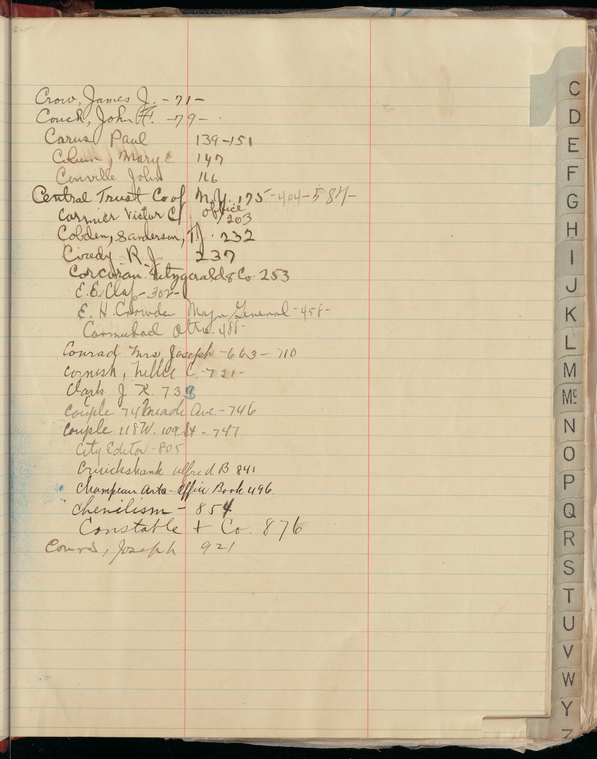 Crow, James J. -71-
Couch, John F. -79-
Carus Paul 139-151
Mary E 147
Conville John 166
Central Trust Co of N.Y. 175-404-584-
Cormier Victor C office 203
Cobden, Sanderson, T.J. 232
R.J. 237
Corcoran Fitzgerald & Co 253
E.E. Clap-302-
E. H. Crowder Major General-458-
Carmichael Otto. 488-
Conrad Mrs Joseph-663-710
Cornish, Nellie C.-721-
Clark J. R. 738
Couple 74 Meade Ave.-746
Couple 118 W. 109 St-747
City Editor-805
Cruickshank Alfred B 841
Champion Arts-Office Book 496
Chenilism-854
Constable + Co. 876
Joseph 921
C
D
E
F
G
H
I
J
K
L
M
Mc
N
O
P
Q
R
S
T
U
V
W
Y
Z